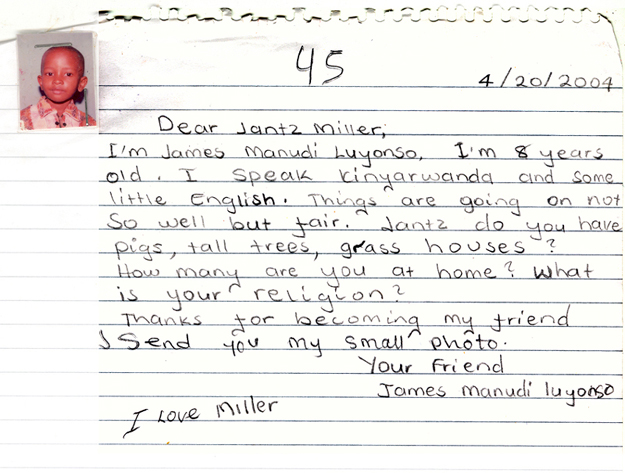 45
4/20/2004
Dear Jantz Miller,
I'm James Manudi Luyonso, I'm 8 years
old. I speak Kinyarwanda and some
little English. Things are going on not
so well but fair. Jantz do you have
pigs, tall trees, grass houses?
How many are you at home? What
is your religion?
Thanks for becoming my friend
I Send you my small photo.
Your Friend
James Manudi luyonso
I Love Miller